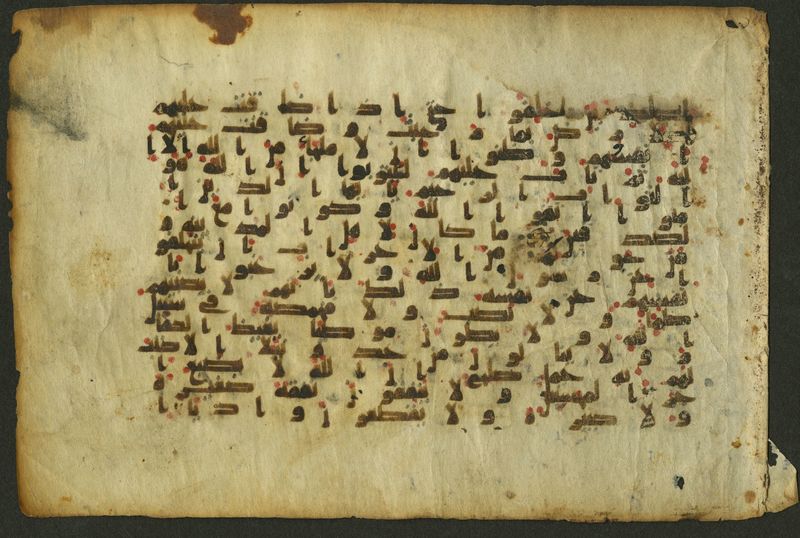 الذين خلفوا حتى اذا ضاقت عليهم
الارض بما رحبت وضاقت عليهم
انفسهم وظنوا ان لا ملجا من الله الا ا
ليه ثم تاب عليهم ليتوبوا ان الله هو
التواب الرحيم يايها الذين ا
منوا اتقوا الله وكونوا مع ا
لصدقين ما كان لاهل المدينة و
من حولهم من الاعراب ان يتخلفو
ا عن رسول الله ولا يرغبوا با
نفسهم عن نفسه ذلك بانهم لا يصيبهم
ظما ولا نصب ولا مخمصة في سبيل
الله ولا يطون موطيا يغيظ الكفا
ر ولا ينالون من عدو نيلا الا كتب
لهم به عمل صلح ان الله لا يضيع ا
جر المحسنين ولا ينفقون نفقة صغيرة
ولا كبيرة ولا يقطعون واديا ا